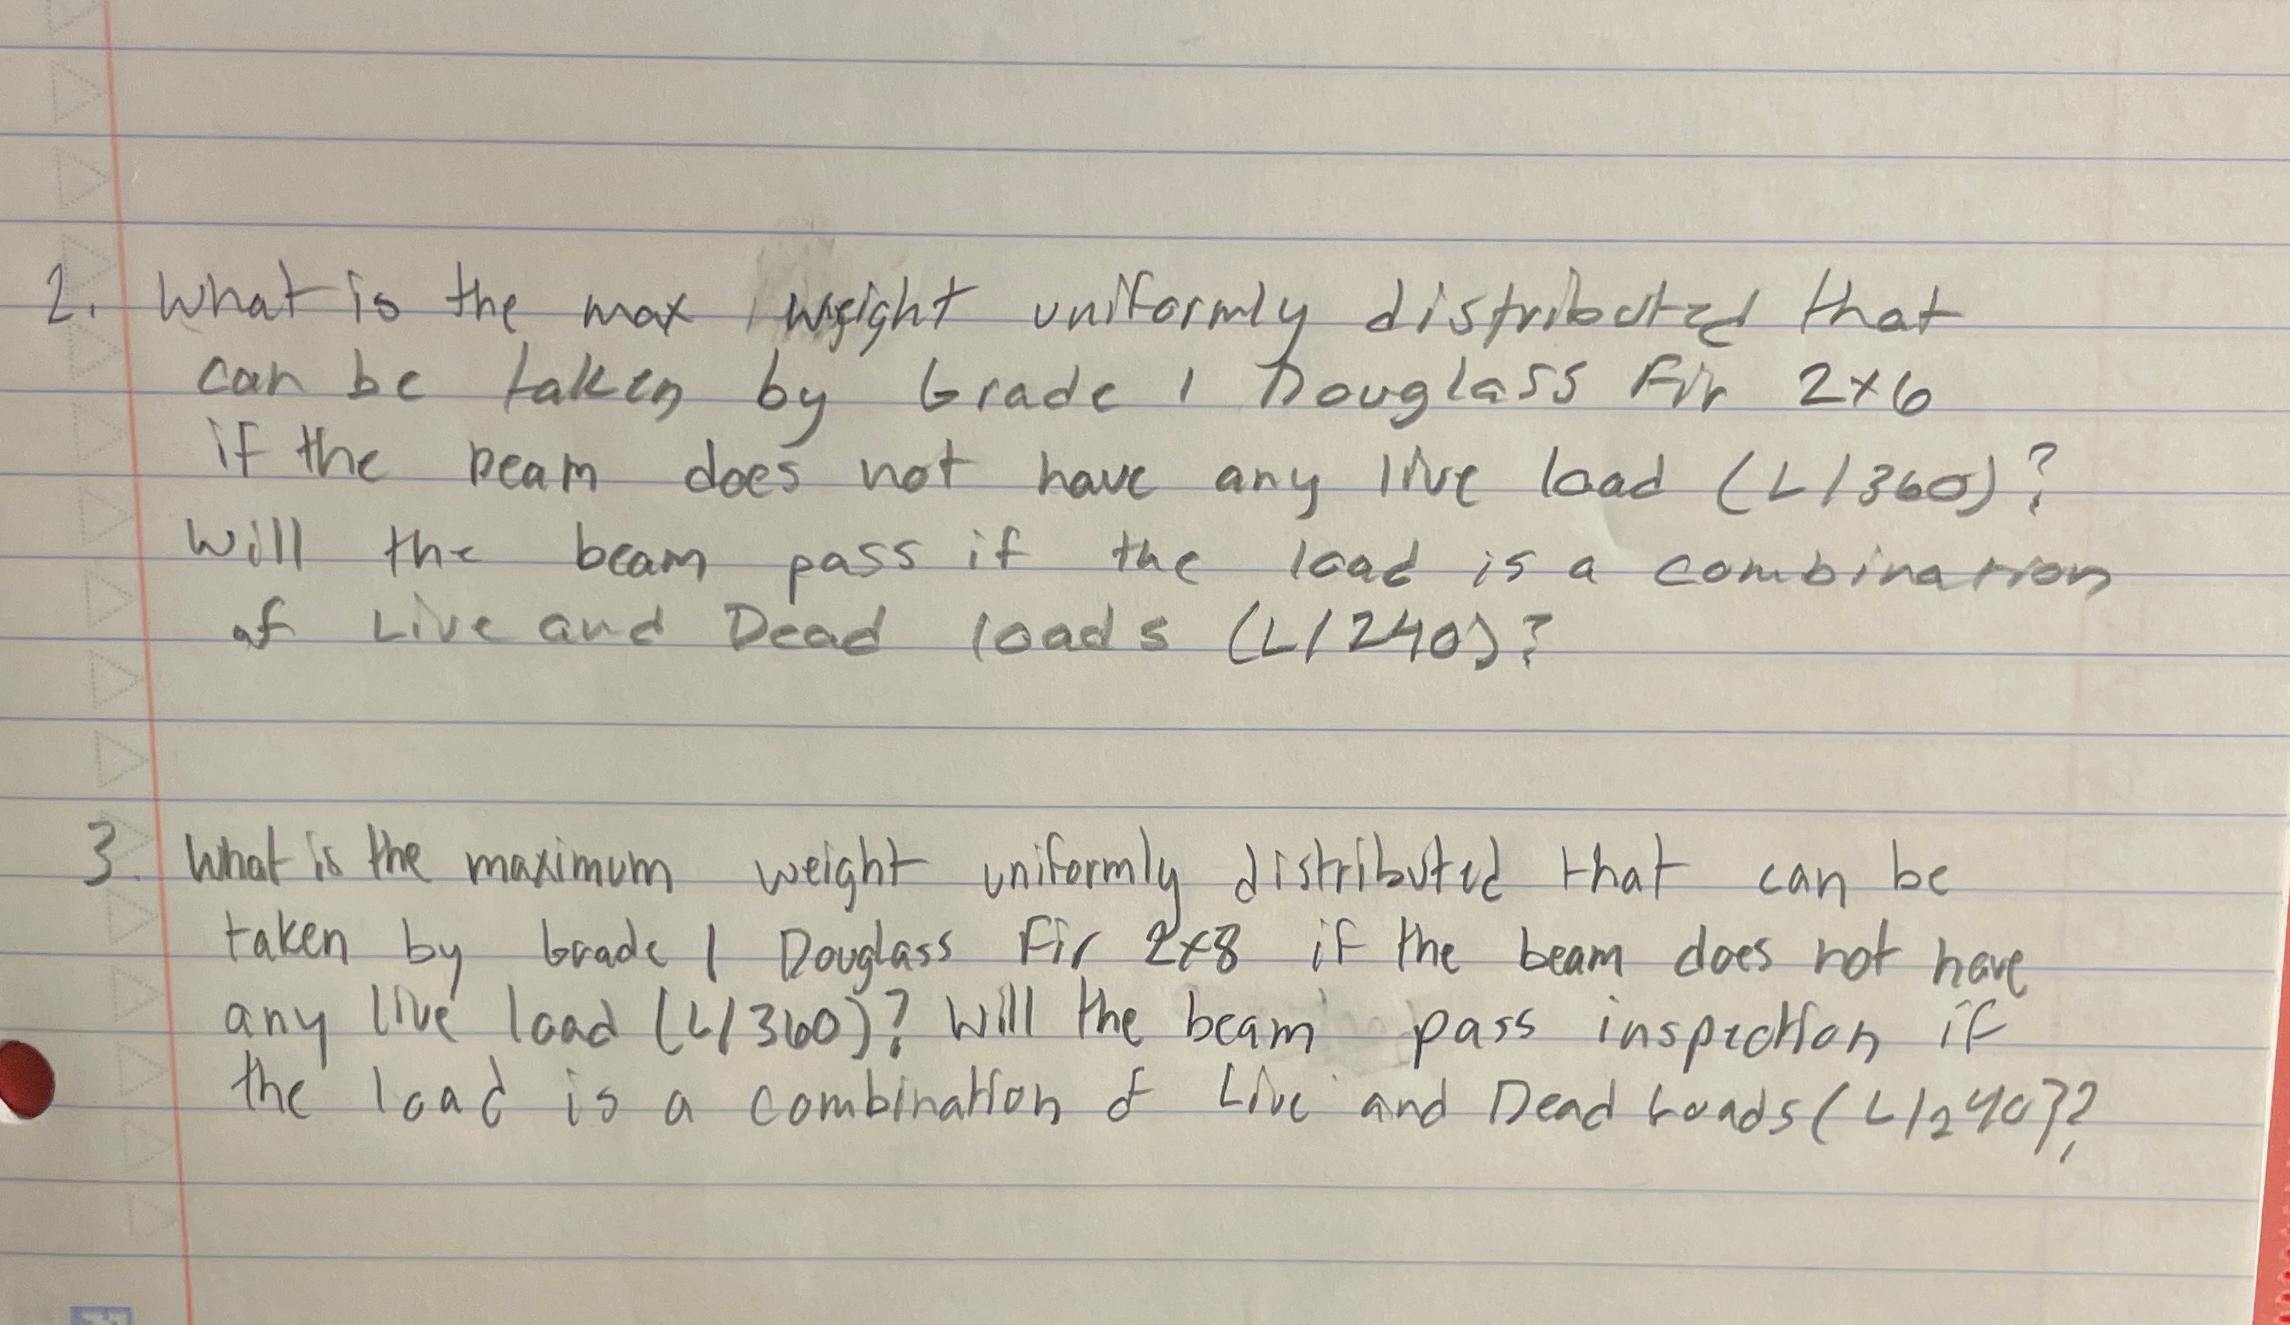 2. What is the max weight uniformly distributed that
can be taken by Grade 1 Douglass Fir 2x6
if the beam does not have any live load (L/360)?
Will the beam pass if the load is a combination
of Live and Dead loads (L/240)?
3. What is the maximum weight uniformly distributed that can be
taken by Grade 1 Douglass Fir 2x8 if the beam does not have
any live load (L/360)? Will the beam pass inspection if
the load is a combination of Live and Dead Loads (L/240)?